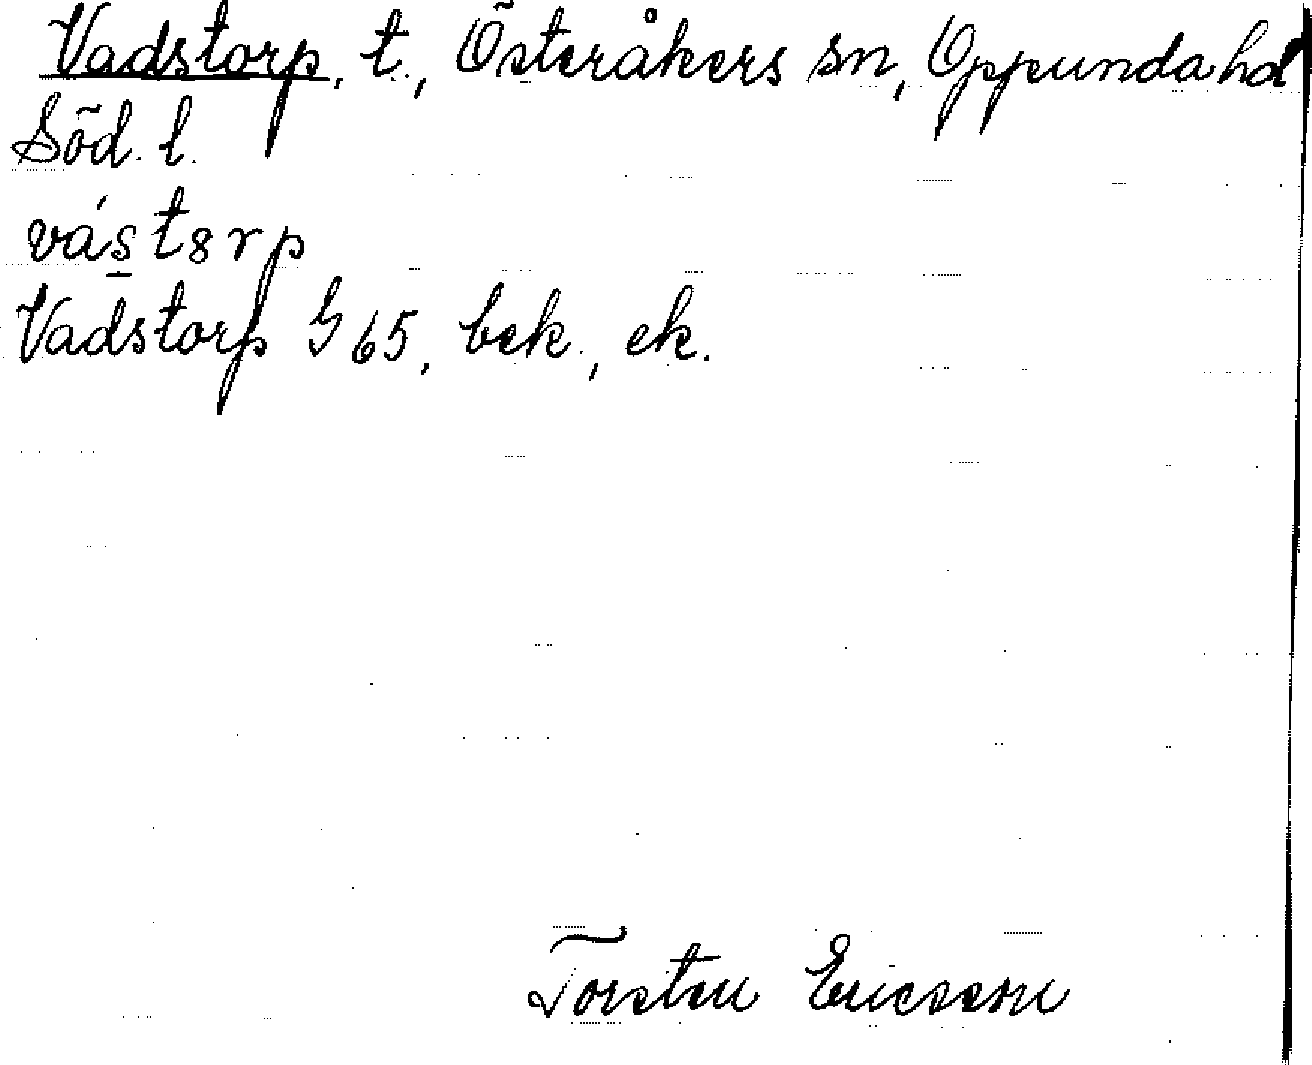 Vadstorp, t., Österåkers sn, Oppunda hd
Söd. l.
vás̲t8rp
Vadstorp G 65, bek., ek.
Torsten Ericsson